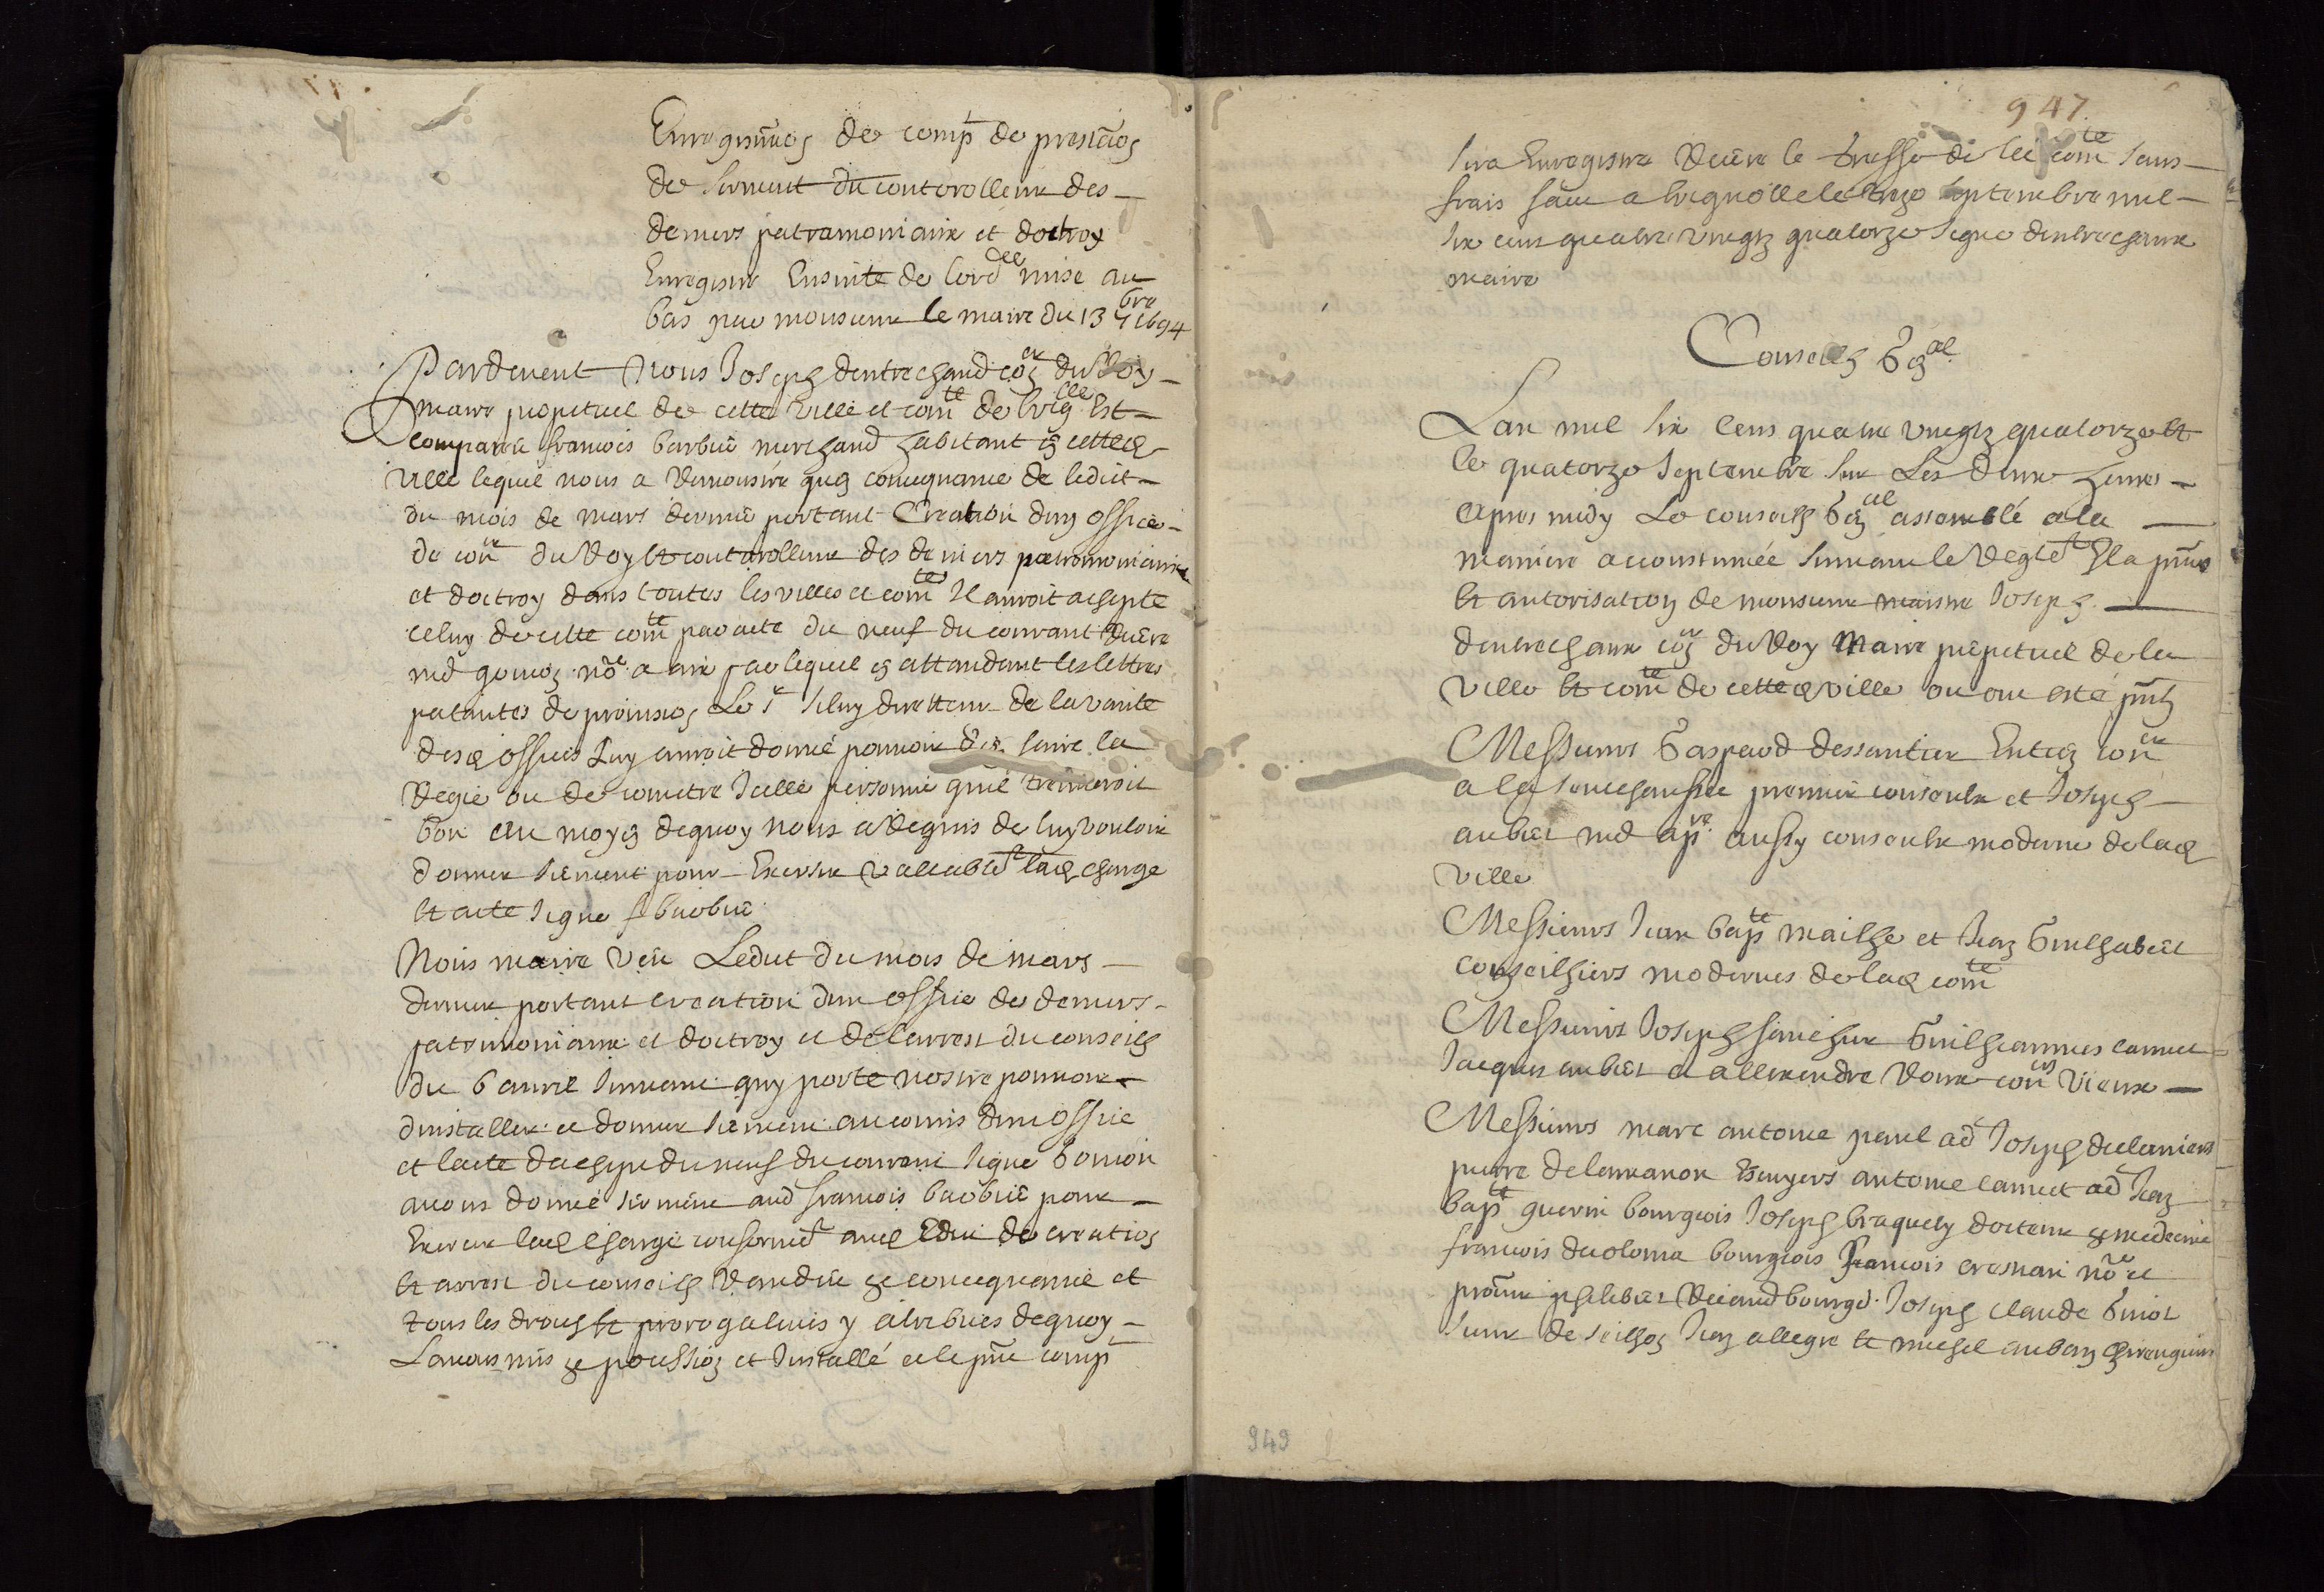 Enregistrãon de comp.t de prestãon
de serment du contorolleur des
deniers patramoniaux et doctroy
Enregistré Ensuitte de lord.ce mise au
bas par monsieur le maire du 13 7bre 1694
Pardevent Nous Joseph dentrechaud con.er du Roy
maire perpetuel de cette Ville et com.te de brig.lle Est
comparëu francois barbüe merchand habitant en cetted
Ville lequel nous a remonstré quen consequance de ledict
du mois de mars dernier portant Creation dun office
de con.er du Roy Et contorolleur des deniers patrimoniaux
et doctroy dans toutes les villes et com.tes Il auroit acsepté
celuy de cette com.te par acte du neuf du courant riere
md no.re a aix par lequel en attandant les lettres
patantes de provision Le s.r directeur de la vante
desd offices Luy auroit donné pouvoir den faire la
Regie ou de cometre Icelle personne quil treuveroit
bon Au moyen dequoy nous a Requis de luy vouloir
donner serment pour Exerser vallable.t lad charge
Et acte signe f barbüe
Nous maire veu Ledict du mois de mars
dernier portant creation dun office de deniers
patrimoniaux et doctroy et de larrest du conseilh
du 6 auril suivant quy porte nostre pouvoir
dinstaller et donner serment au comis dun office
et lacte dacsept du neuf du courant signe
avons donné serment aud francois barbüe pour
Exerser lad charge conformet aud Edict de creation
Et arrest du conseilh Randu en consequance et
tous les droits Et prorogatives y atribues dequoy
Lavons mis en possession et Installé et le pnt comp.t
947
sera Enregistre riere le greffe de la com.te sans
frais faict a brignolle le treze septembre mil
six cens quatre vingtz quatorze signe dentrechaux
maire
Conseilh G.nal
Lan mil six cens quatre vingtz quatorze Et
le quatorze septembre sur Les deux heures
apres midy Le conseilh G.nal assemblé a la
maniere accoustumée suivant le Regle.t En la pnce
Et autorisation de monsieur maistre Joseph
dentrechaux con.er du Roy Maire perpetuel de la
ville Et com.te de cetted ville ou ont esté pnts
Messieurs Gaspard dessautier Entien con.er
a la senechaussée premier consoulx et Joseph
aubert md ap.re aussy consoulx moderne de lad
Ville
Messieurs Jean bap.te mailhe et Jean Guilhabert
conseilhiers modernes de lad com.te
Messieurs Joseph Guilheaumes camet
Jacques aubert et allexendre Roux con.ers Vieux
Messieurs marc antoine paul ad Joseph
pierre delamanon Escuyers antoine camet ad Jean
bap.te guerin bourgeois Joseph braquety docteur en medecine
francois ducloma bourgeois francois no.re et
procur philibert bourgs. Joseph claude
sieur de seilhon Jean allegre Et michel auban chireugiens
949